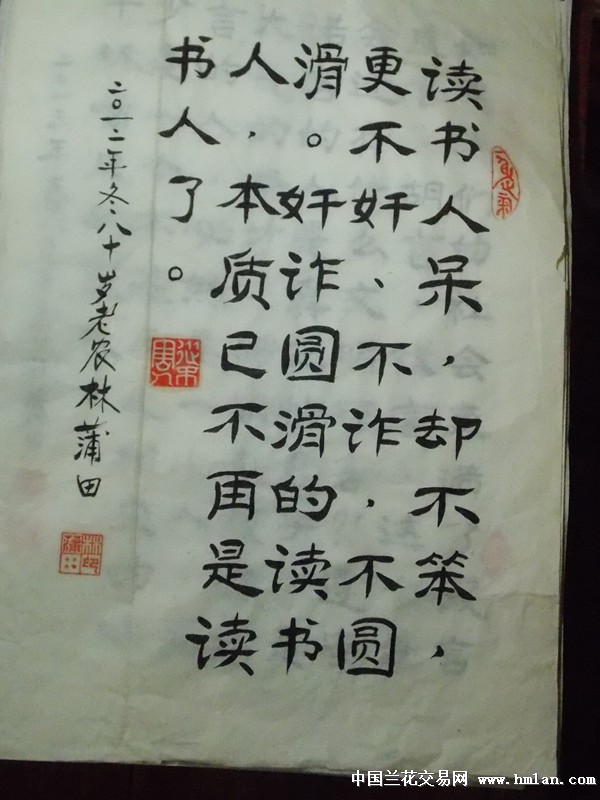 读书人呆，却不笨，
更不奸、不诈，不圆
滑。奸诈圆滑的读书
人，本质已不再是读
书人了。
二〇一二年冬八十岁老农林蒲田
中国兰花交易网 www.hmlan.com